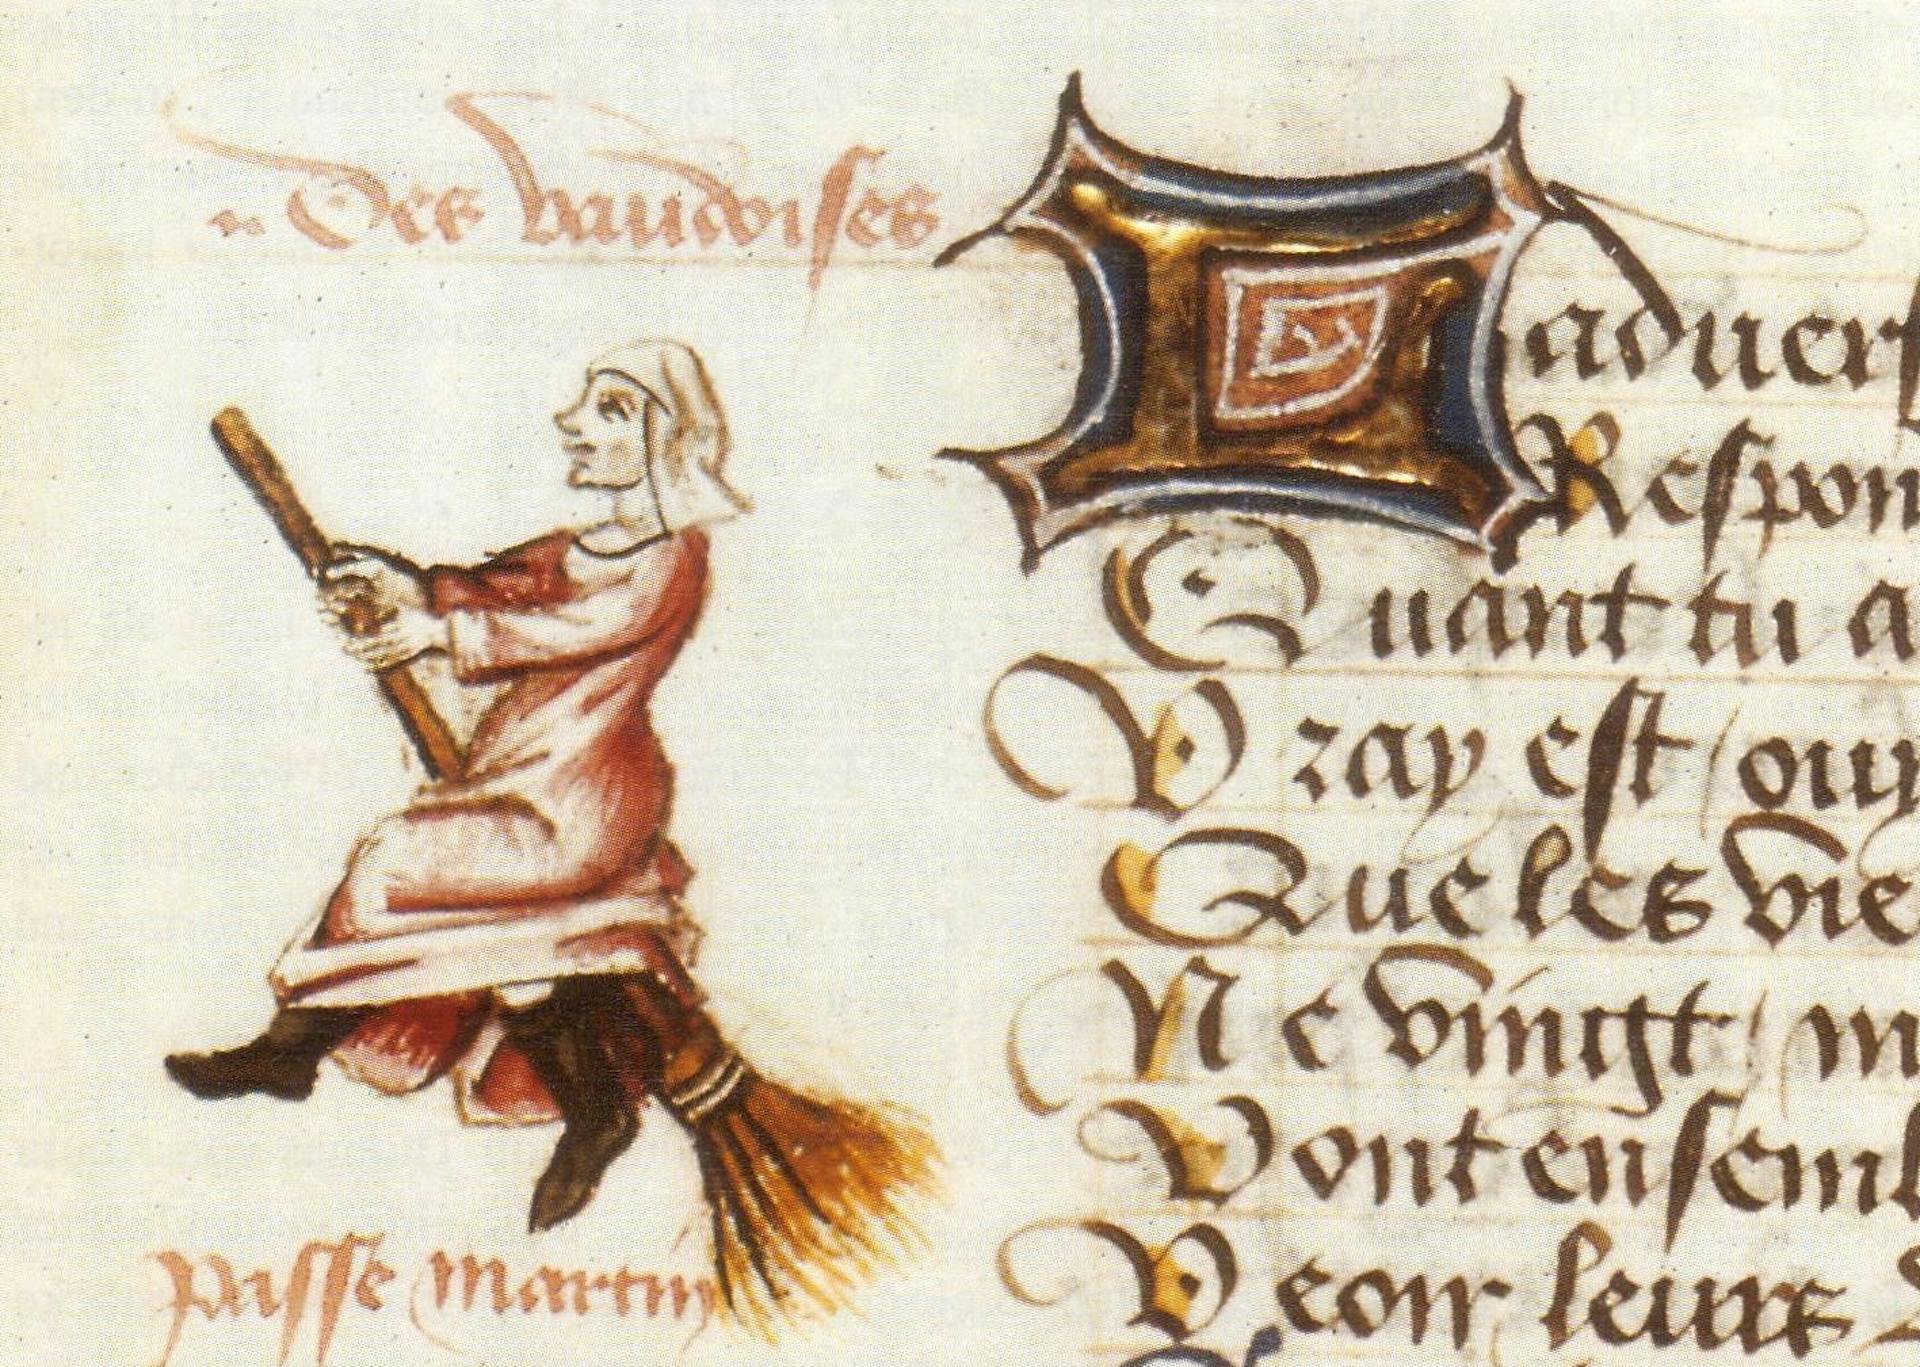 Des vaudoises
L aduers
Respon
Quant tu a
Vray est / ouy
Que les vie
Ne vingt / m
Vont ensembl
Veoir leurs
passe martin